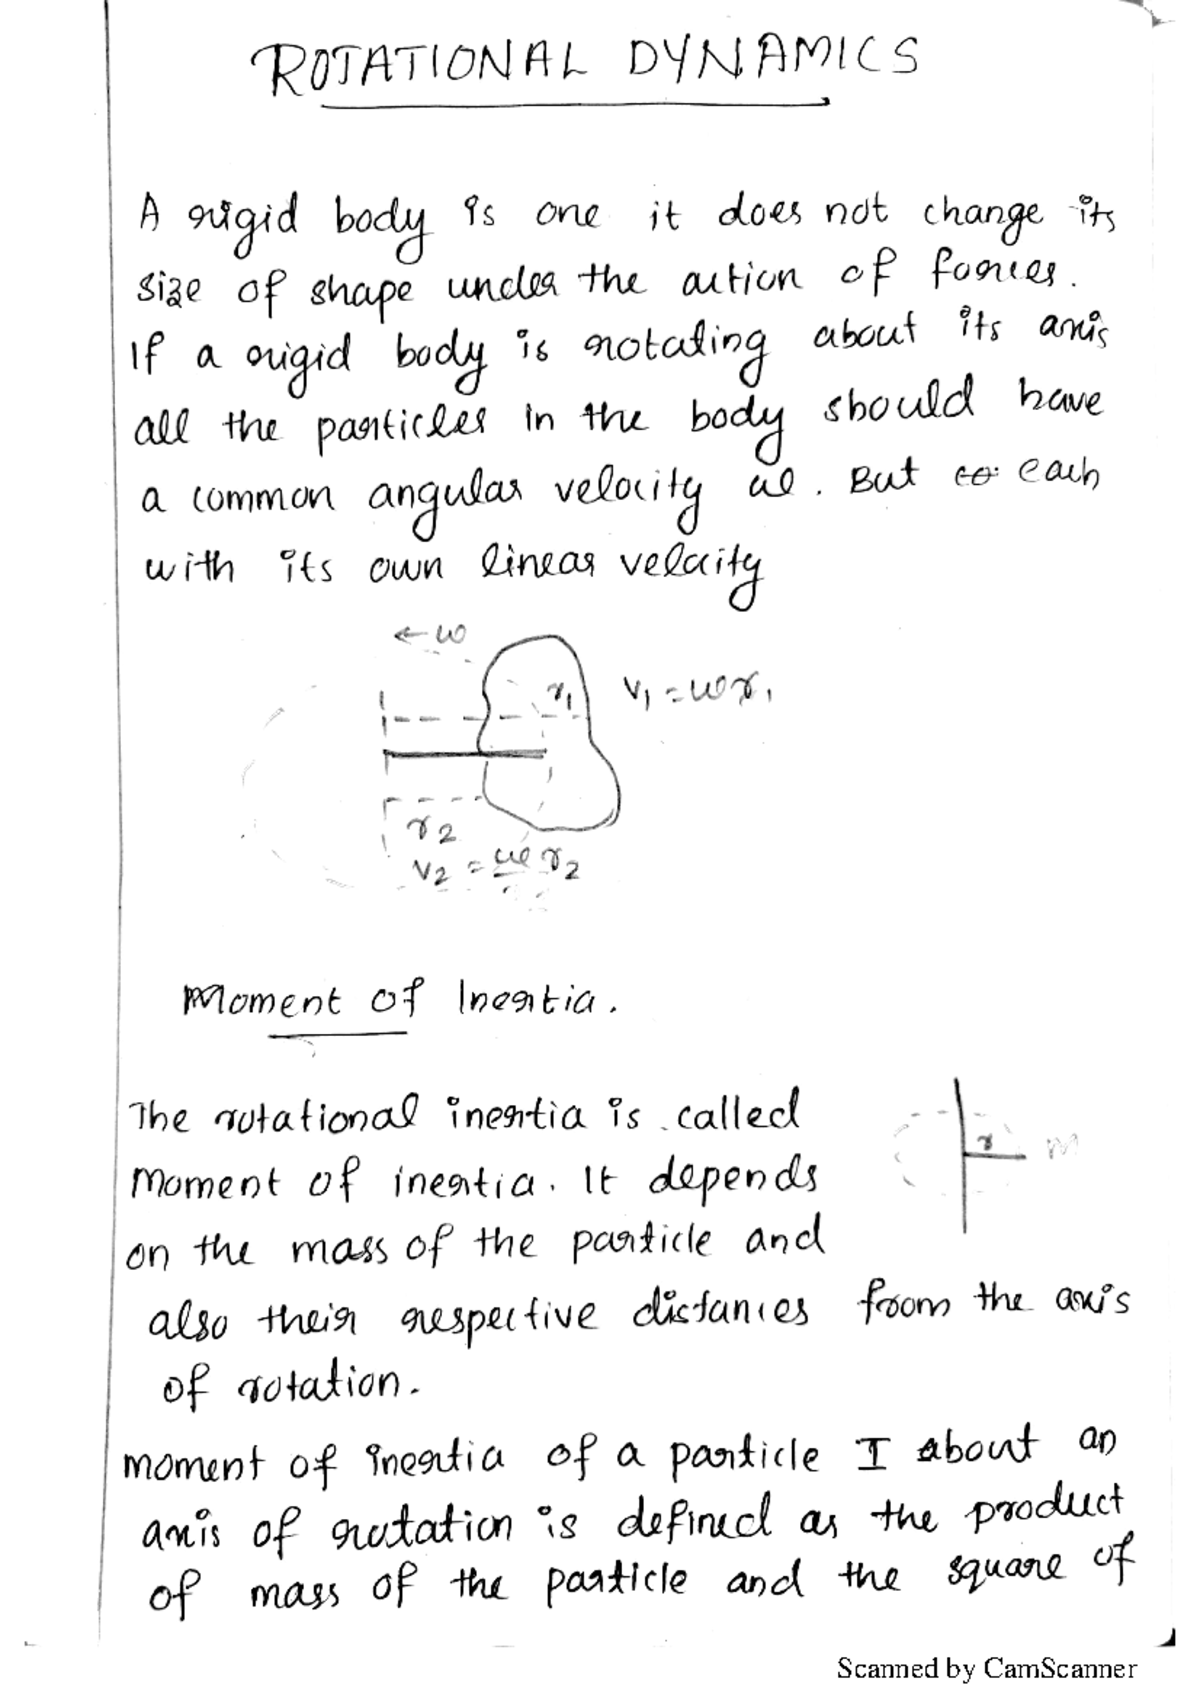 ROTATIONAL DYNAMICS
A rigid body is one it does not change its
size of shape under the action of forces.
If a rigid body is rotating about its axis
all the particles in the body should have
a common angular velocity ω. But each
with its own linear velocity
← ω
r₁
v₁ = ωr₁
r₂
v₂ = ω r₂
Moment of Inertia.
The rotational inertia is called
r
m
Moment of inertia. It depends
on the mass of the particle and
also their respective distances from the axis
of rotation.
moment of inertia of a particle I about an
axis of rotation is defined as the product
of mass of the particle and the square of
Scanned by CamScanner